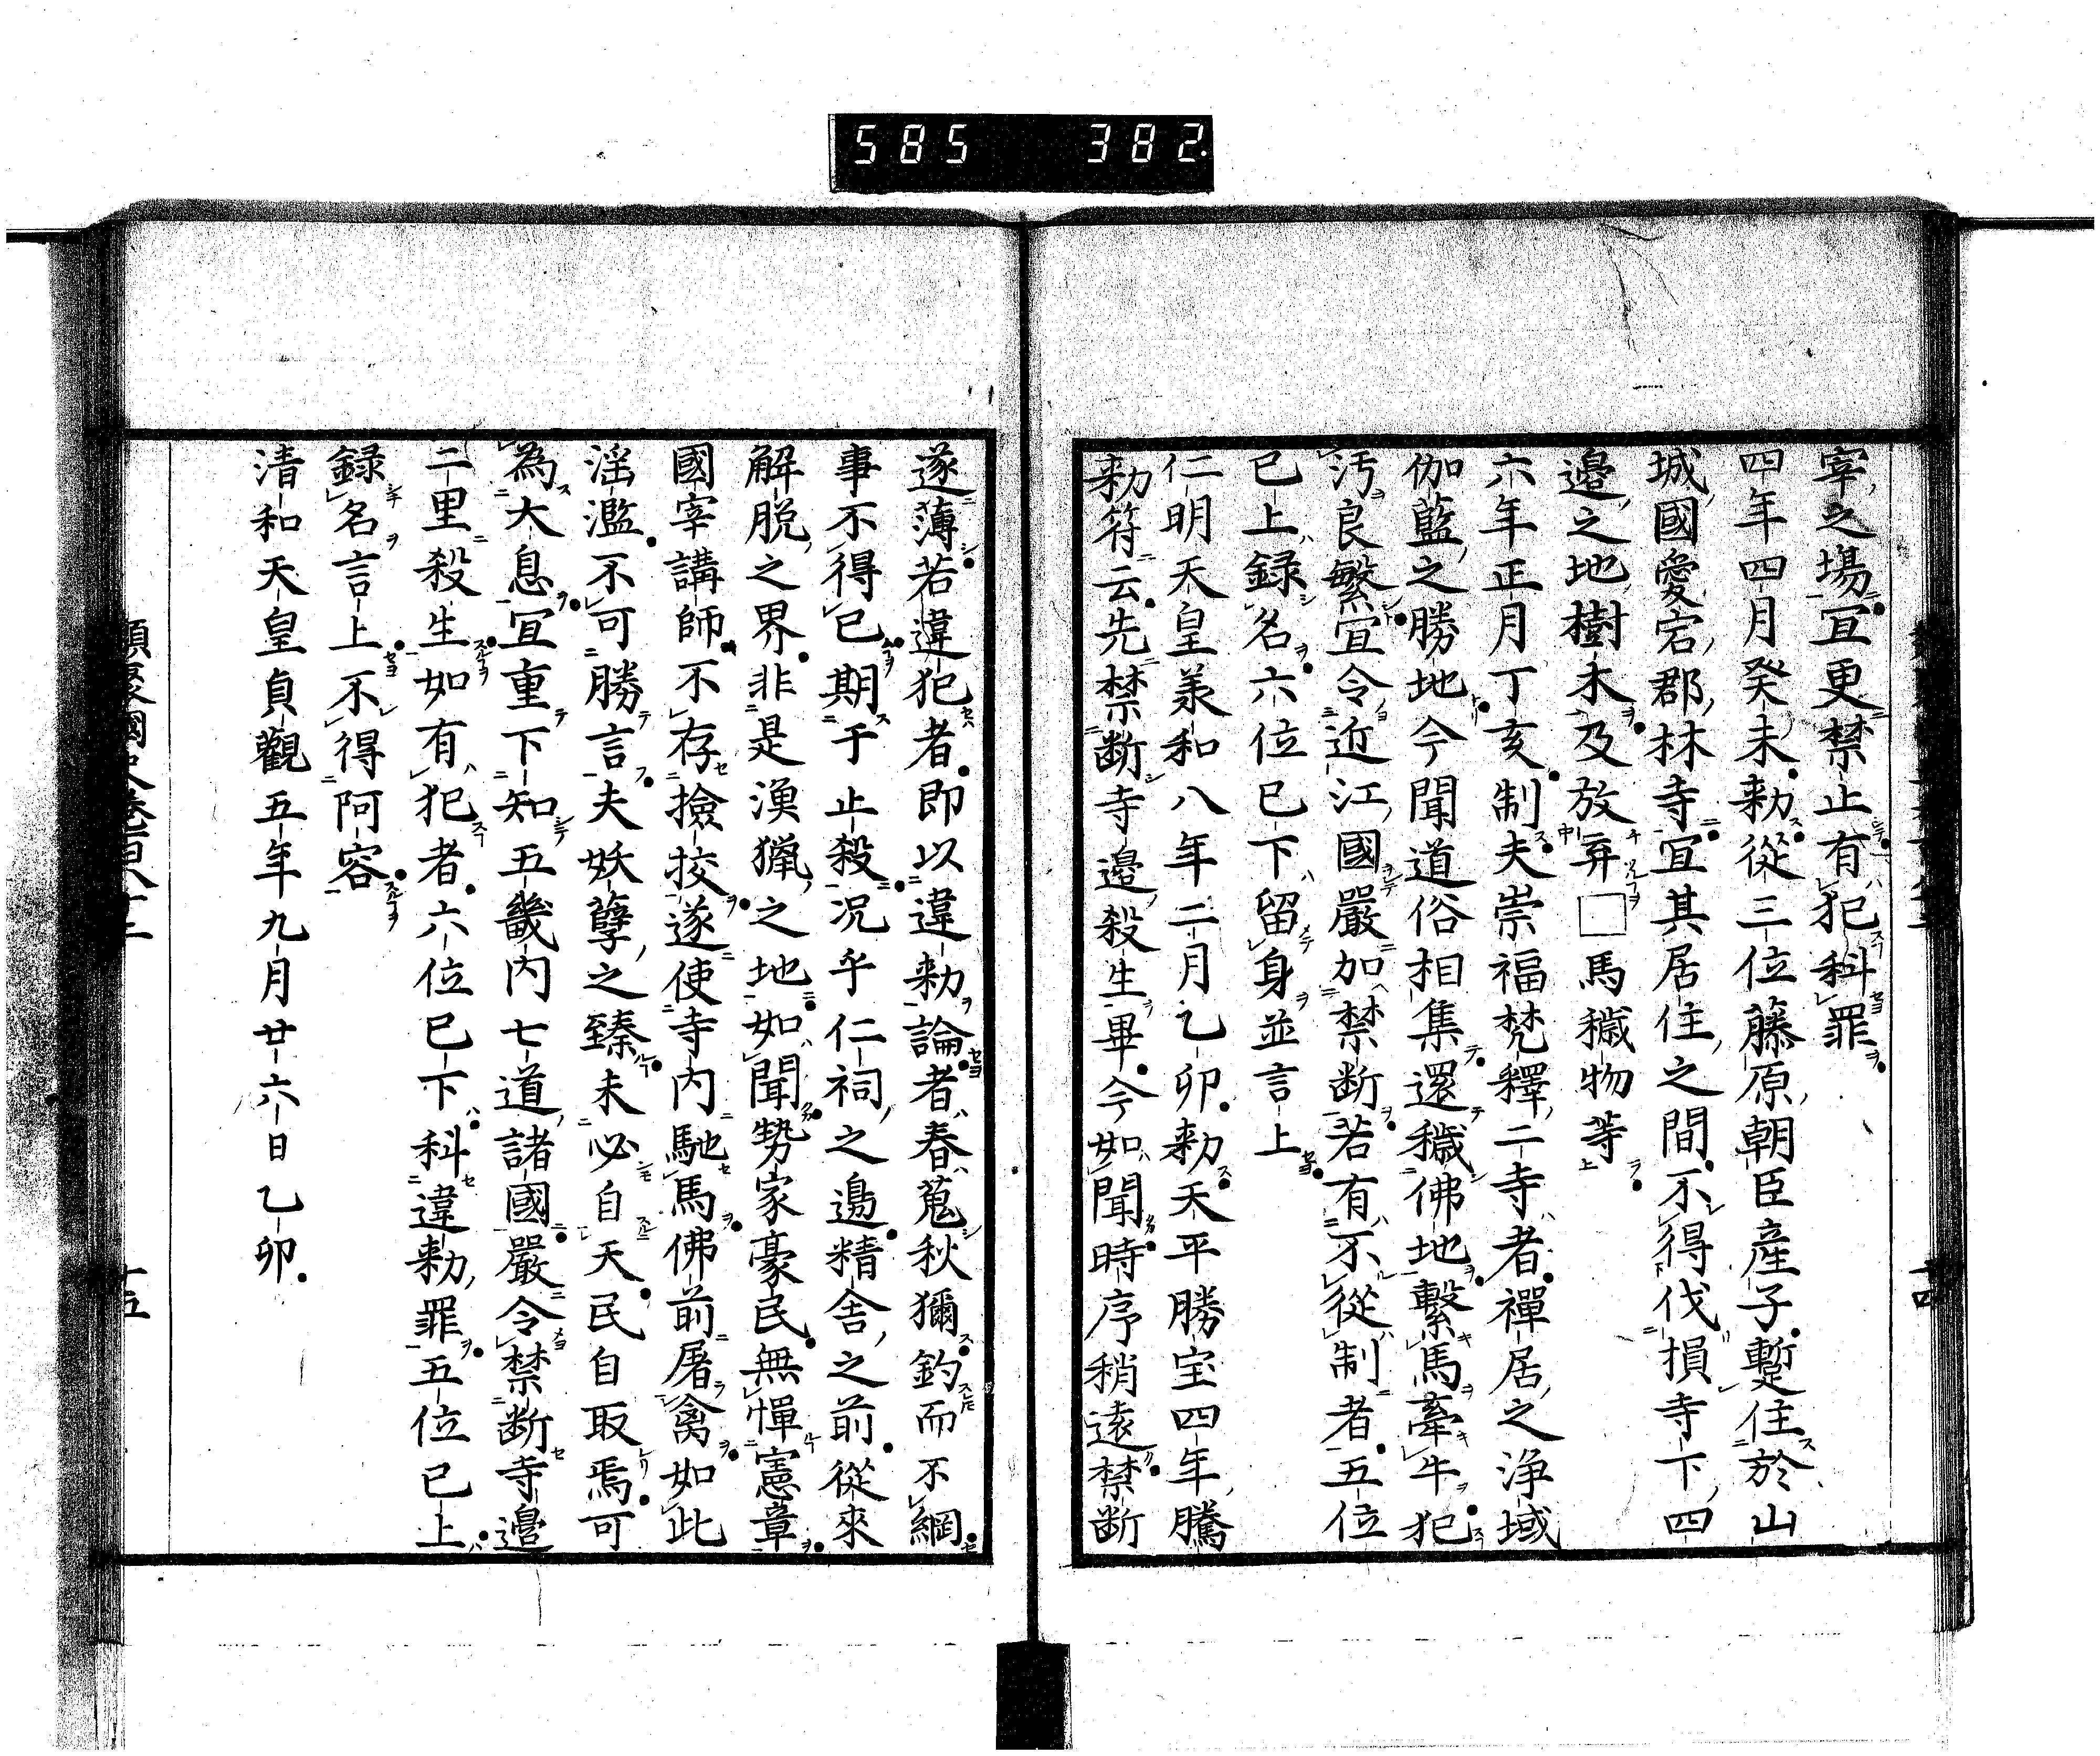 585 382
宰之場宜更禁止有犯科罪
四年四月癸未勅從三位藤原朝臣産子蹔住於山
城國愛宕郡林寺宜其居住之間不得伐損寺下四
邊之地樹木及放弃□馬穢物等
六年正月丁亥制夫崇福梵釋二寺者禪居之浄域
伽藍之勝地今聞道俗相集還穢佛地繋馬牽牛犯
汚良繁宜令近江國嚴加禁断若有不從制者五位
已上録名六位已下留身並言上
仁明天皇羕和八年二月乙卯勅天平勝宝四年騰
勅符云先禁断寺邊殺生畢今如聞時序稍遠禁断
遂薄若違犯者即以違勅論者春蒐秋獮釣而不綱
事不得已期于止殺況乎仁祠之邊精舎之前從來
解脱之界非是漁獵之地如聞勢家豪民無憚憲章
國宰講師不存撿挍遂使寺内馳馬佛前屠禽如此
淫濫不可勝言夫妖孽之臻未必自天民自取焉可
為大息宜重下知五畿内七道諸國嚴令禁断寺邊
二里殺生如有犯者六位已下科違勅罪五位已上
録名言上不得阿容
清和天皇貞觀五年九月廿六日乙卯